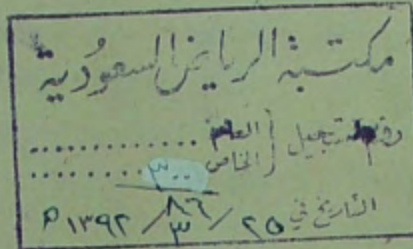 مكتبة الرياض السعودية
رقم التسجيل { العام ............
الخاص ٣٠٠ ............
٨٦
التاريخ في ٢٥ / ٣ / ١٣٩٢ هـ